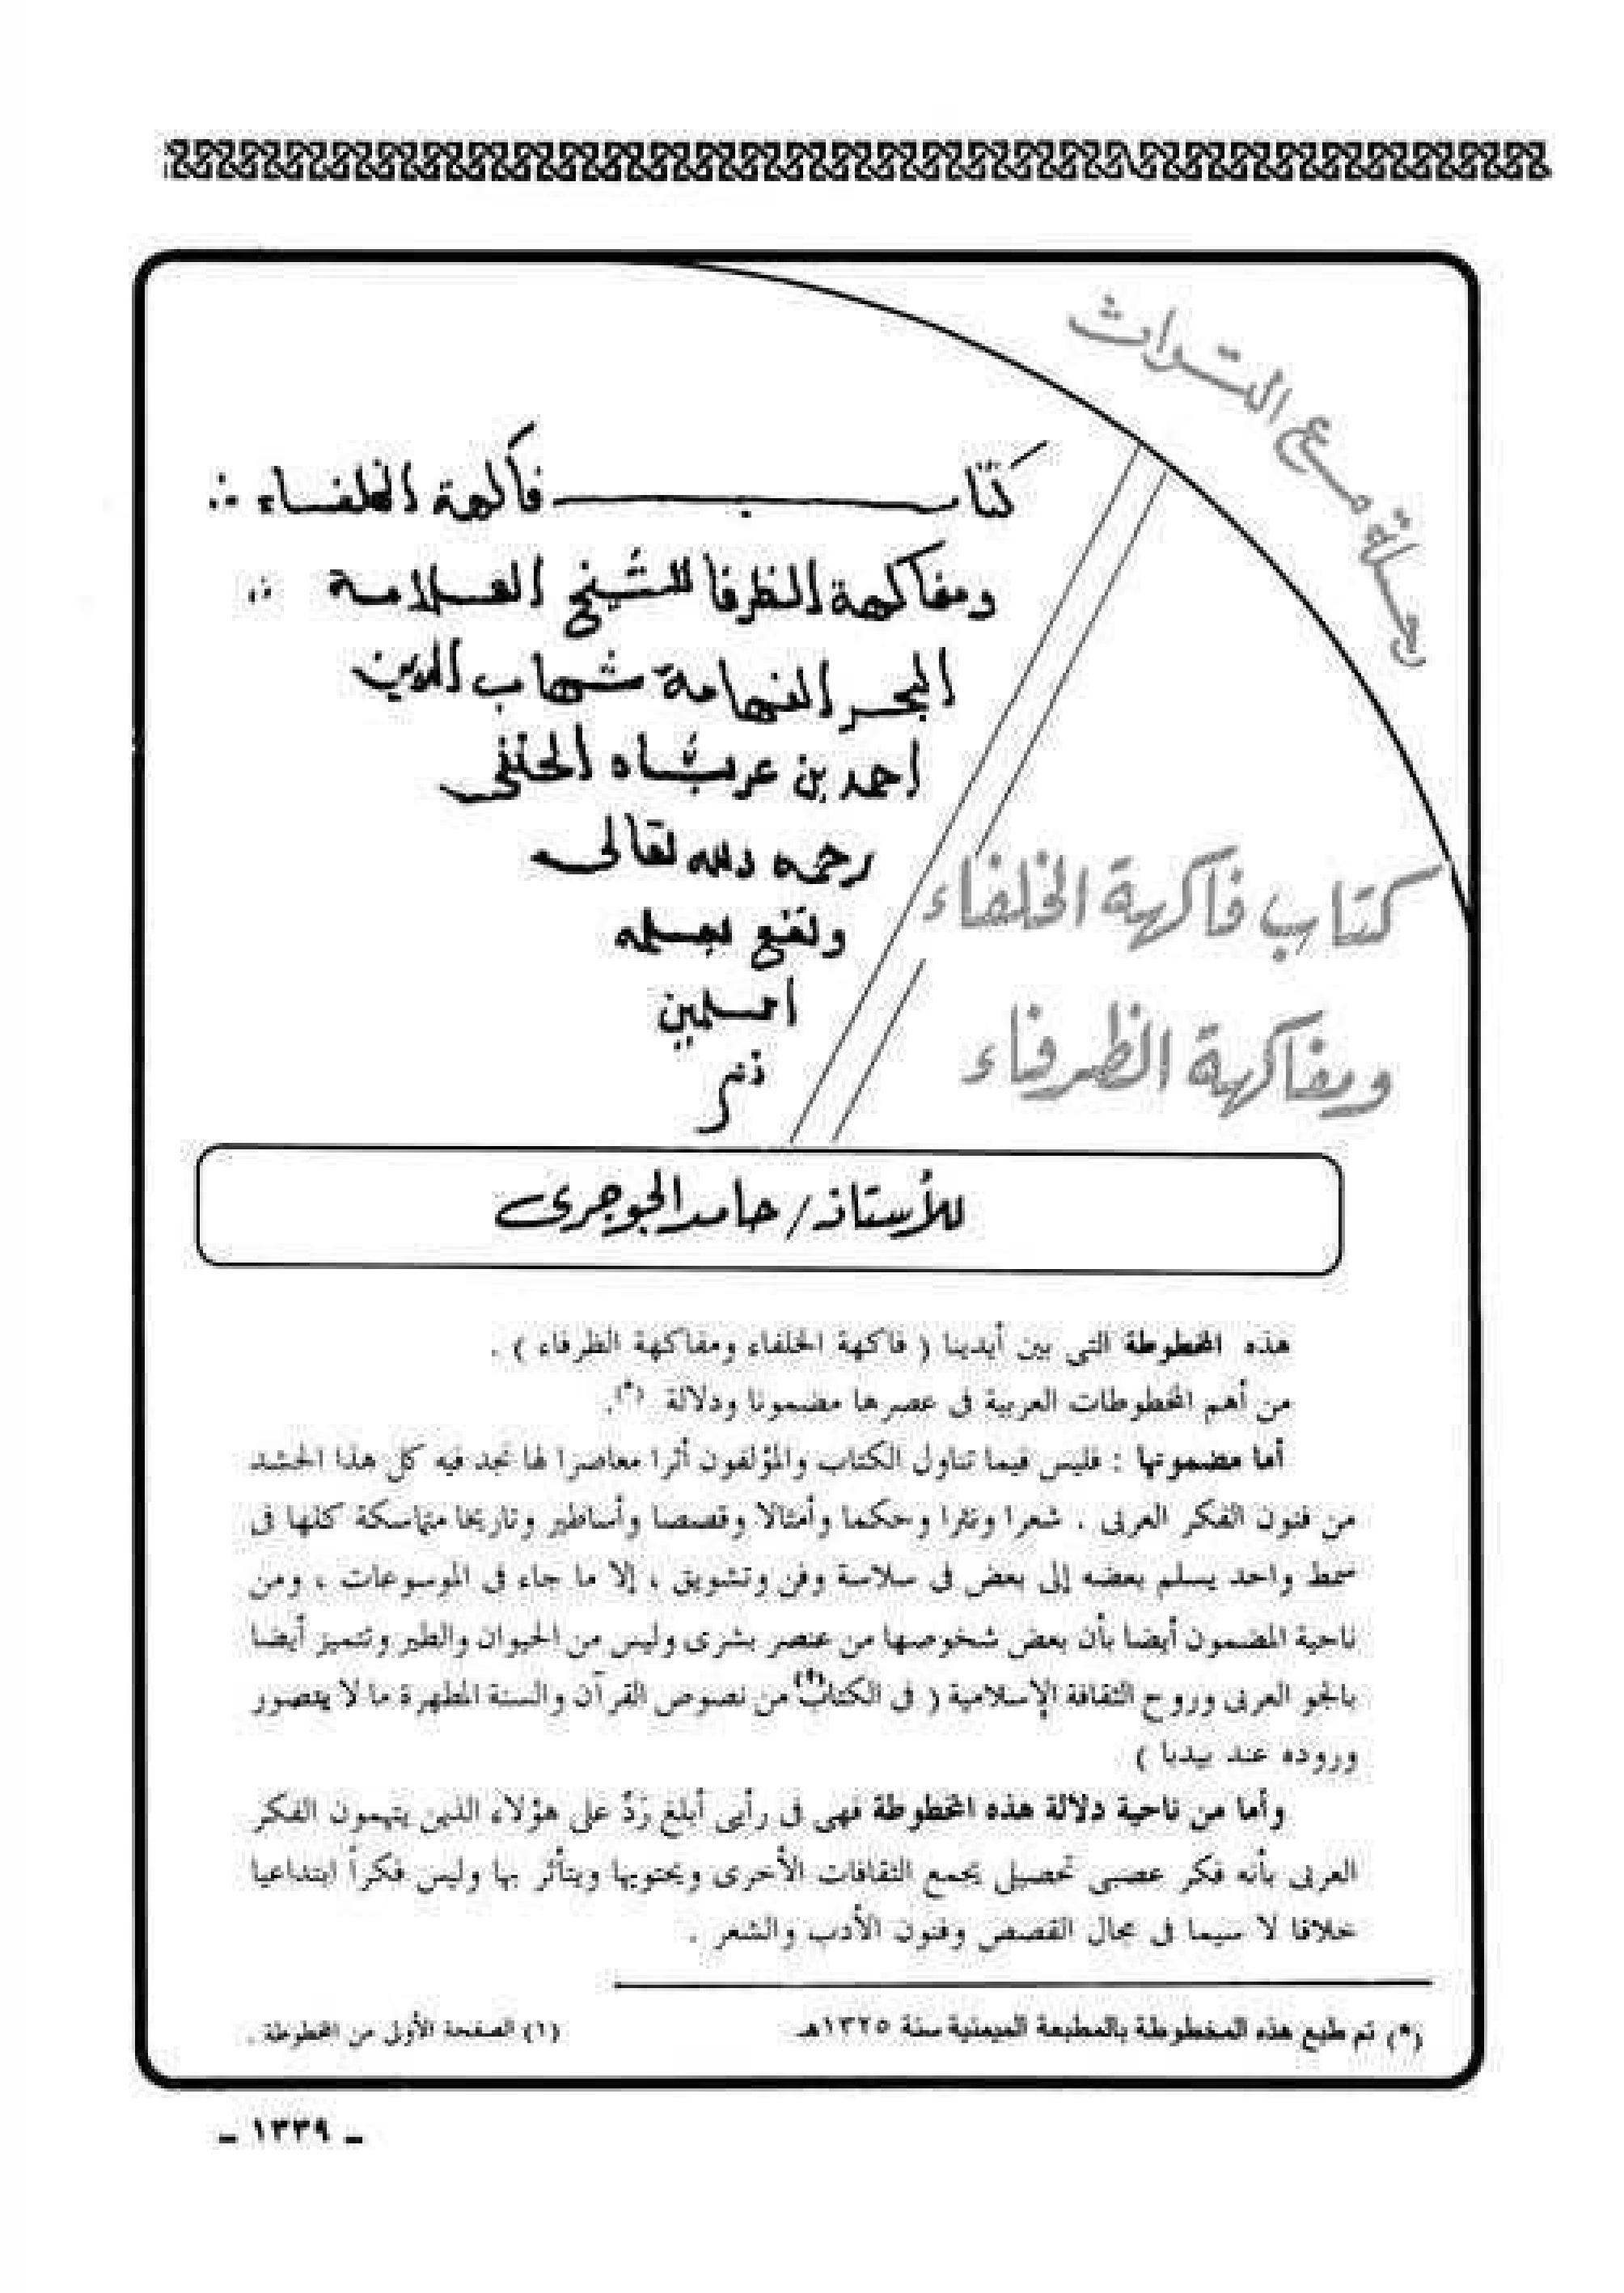 رحلة مع التراث
كتاب فاكهة الخلفاء ..
ومفاكهة الظرفا للشيخ العلامة ..
البحر الفهامة شهاب الدين
احمد بن عربشاه الحنفى
رحمه الله تعالى
ونفع بعلمه
كتاب فاكهة الخلفاء
ومفاكهة الظرفاء
للأستاذ/ حامد الجوجرى
هذه المخطوطة التى بين أيدينا ( فاكهة الخلفاء ومفاكهة الظرفاء ) .
من أهم المخطوطات العربية فى عصرها مضمونا ودلالة (*).
أما مضمونها : فليس فيما تناول الكتاب والمؤلفون أثرا معاصرا لها تجد فيه كل هذا الحشد
من فنون الفكر العربى . شعرا ونثرا وحكما وأمثالا وقصصا وأساطير وتاريخا متماسكة كلها فى
سمط واحد يسلم بعضه إلى بعض فى سلاسة وفن وتشويق ، إلا ما جاء فى الموسوعات ، ومن
ناحية المضمون أيضا بأن بعض شخوصها من عنصر بشرى وليس من الحيوان والطير وتتميز أيضا
بالجو العربى وروح الثقافة الإسلامية ( فى الكتاب من نصوص القرآن والسنة المطهرة ما لا يتصور
وروده عند بيدبا )
وأما من ناحية دلالة هذه المخطوطة فهى فى رأيى أبلغ رَدٌ على هؤلاء الذين يتهمون الفكر
العربى بأنه فكر عصبى تحصيلى يجمع الثقافات الأخرى ويحتويها ويتأثر بها وليس فكراً ابتداعيا
خلاقا لا سيما فى مجال القصص وفنون الأدب والشعر .
(*) تم طبع هذه المخطوطة بالمطبعة الميمنية سنة ١٣٢٥هـ
(١) الصفحة الأولى من المخطوطة .
ـ ١٣٣٩ ـ